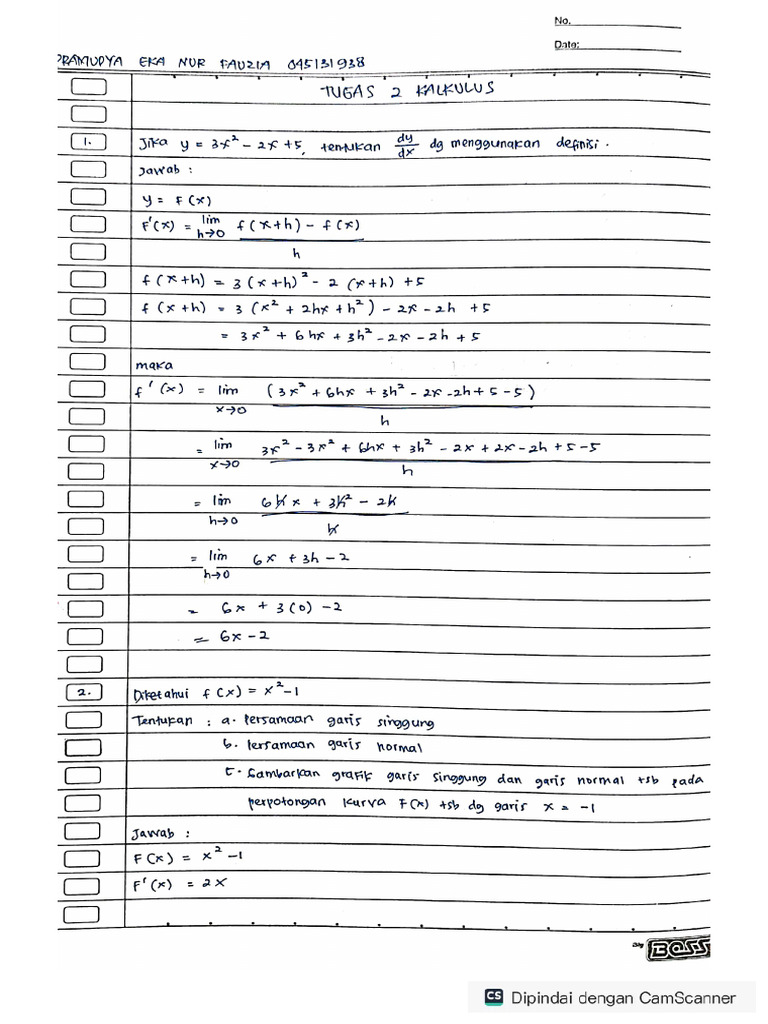 No.
Date:
PRAMUDYA EKA NUR FAUZIA 045131938
TUGAS 2 KALKULUS
1. Jika y = 3x² - 2x + 5, tentukan dy/dx dg menggunakan definisi.
Jawab :
y = F(x)
F'(x) = lim h→0 f(x+h) - f(x) / h
f(x+h) = 3(x+h)² - 2(x+h) + 5
f(x+h) = 3(x² + 2hx + h²) - 2x - 2h + 5
= 3x² + 6hx + 3h² - 2x - 2h + 5
maka
f'(x) = lim x→0 (3x² + 6hx + 3h² - 2x - 2h + 5 - 5) / h
= lim x→0 3x² - 3x² + 6hx + 3h² - 2x + 2x - 2h + 5 - 5 / h
= lim h→0 6hx + 3h² - 2h / h
= lim h→0 6x + 3h - 2
= 6x + 3(0) - 2
= 6x - 2
2. Diketahui f(x) = x² - 1
Tentukan : a. Persamaan garis singgung
b. Persamaan garis normal
c. Gambarkan grafik garis singgung dan garis normal tsb pada
perpotongan kurva F(x) tsb dg garis x = -1
Jawab :
F(x) = x² - 1
F'(x) = 2x
By BOSS
CS Dipindai dengan CamScanner